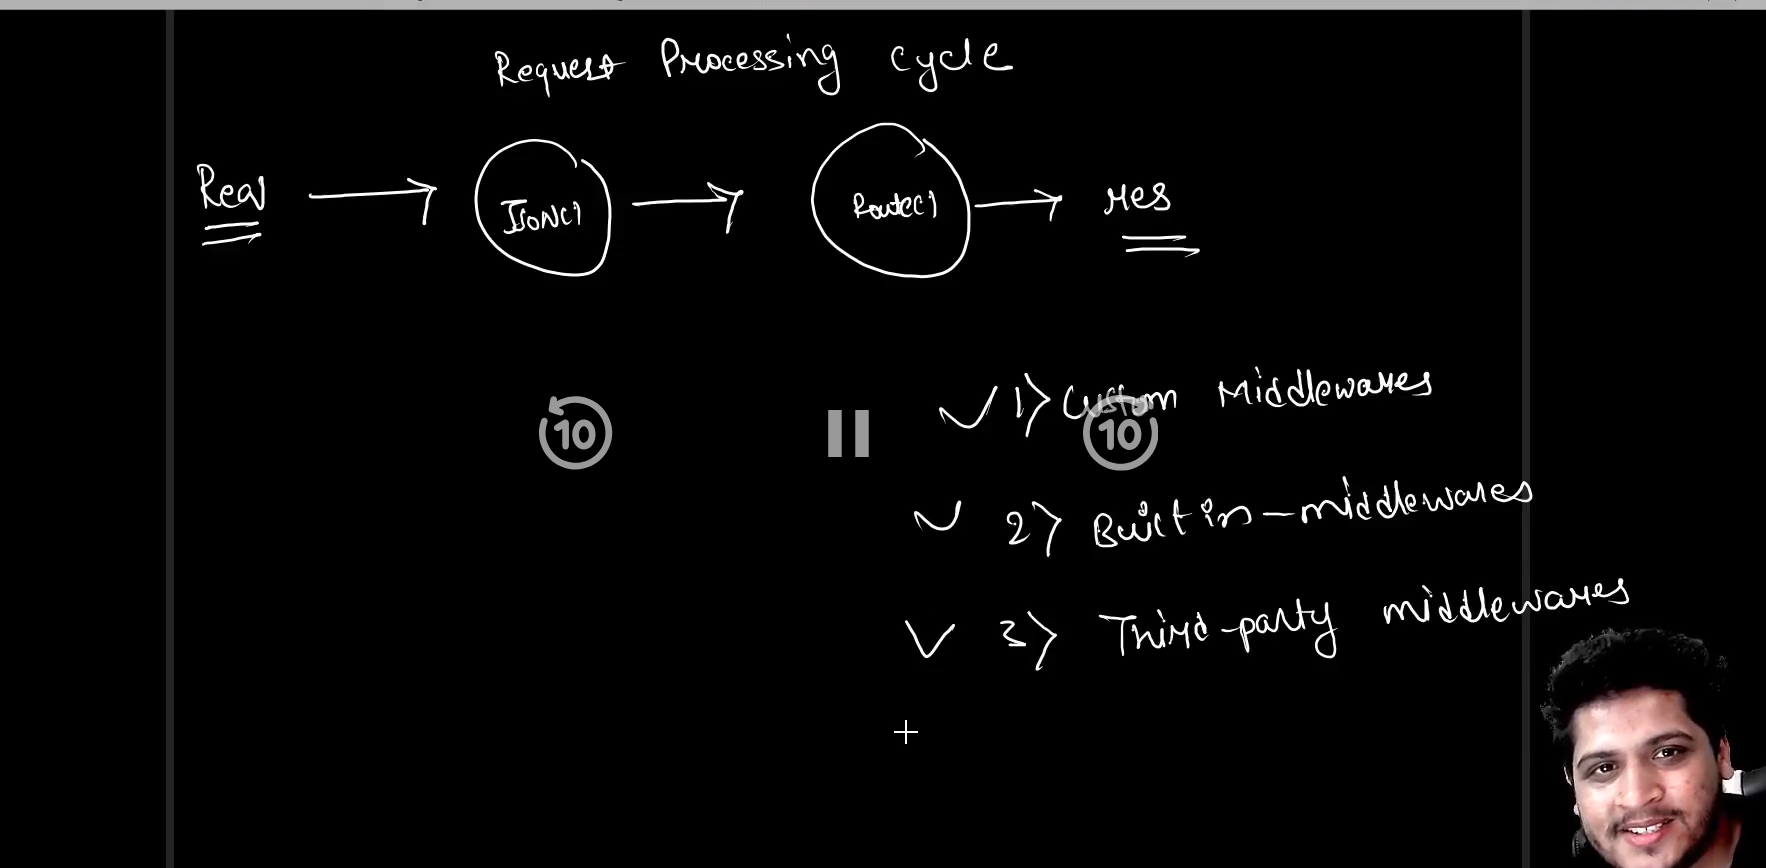 Request Processing cycle
Req → JSON() → Route() → res
1) Custom Middlewares
2) Built in-middlewares
3) Third-party middlewares
10 10